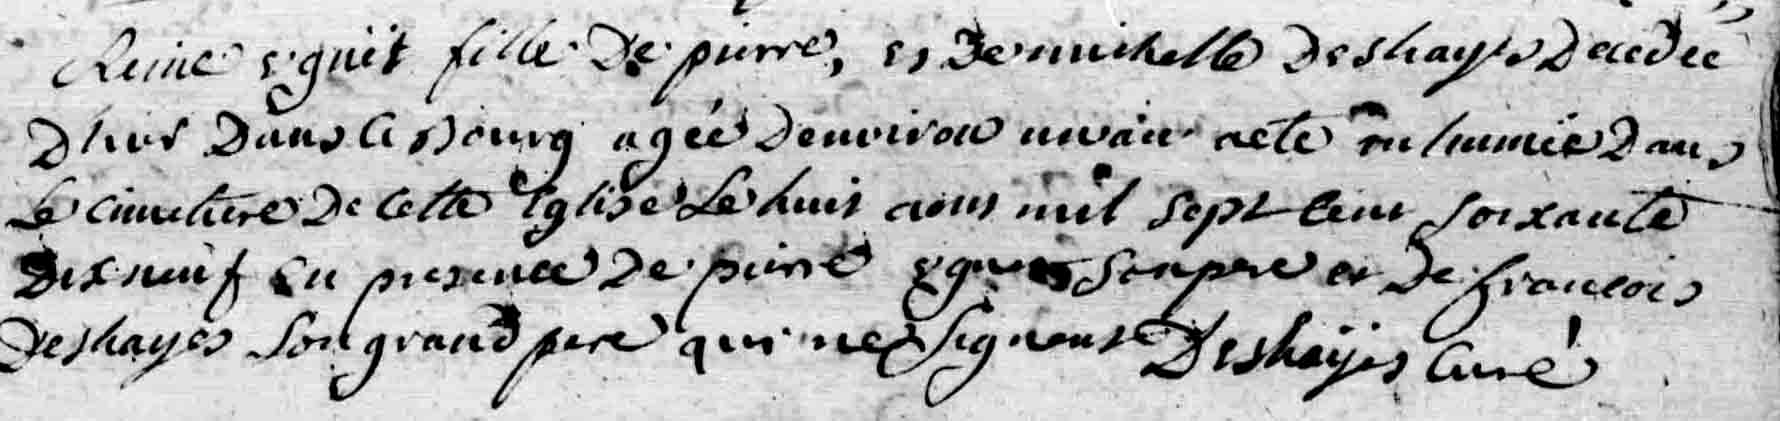 Reine eguit fille De pierre, et De michelle Deshayes Decedée
Dhier Dans le Bourg agée Denviron un an aeté inhumée Dans
Le cimetiere De cette Eglise Le huit aous mil sept cent soixante
Dix neuf en presence De pierre son pere et De francois
Deshayes son grand pere qui ne signent Deshayes Curé